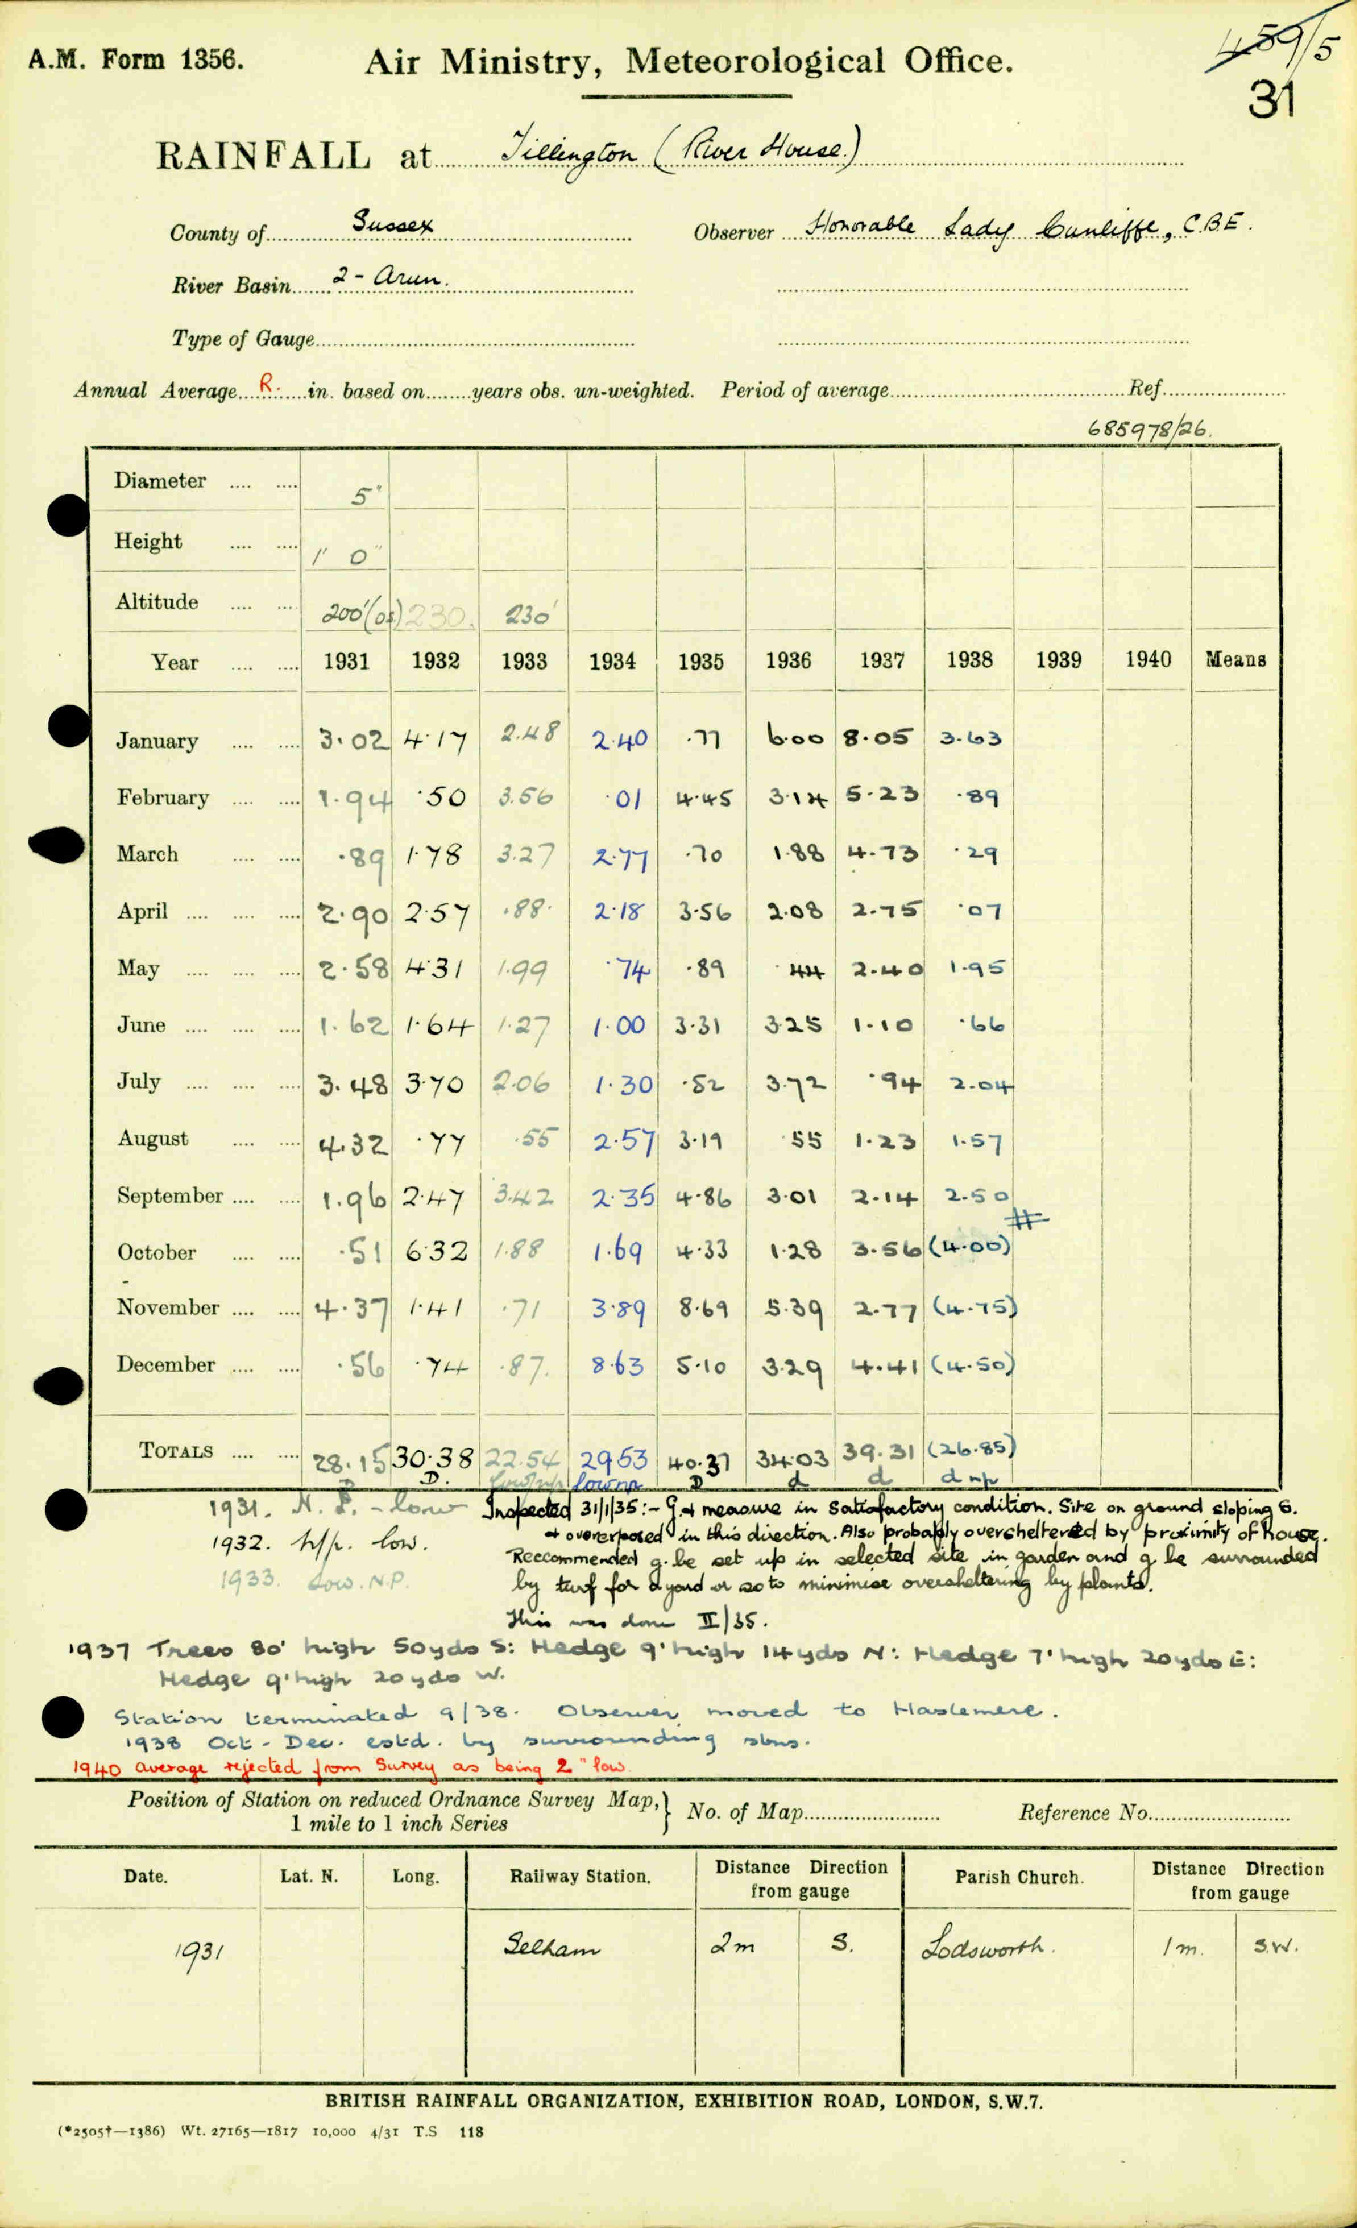 A.M. Form 1356.
Air Ministry, Meteorological Office.
459/5
31
RAINFALL at Tillington (River House.)
County of Sussex Observer Honorable Lady Cunliffe, C.B.E.
River Basin 2 - Arun.
Type of Gauge
Annual Average R. in. based on years obs. un-weighted. Period of average Ref.
685978/26.
Diameter 5"
Height 1" 0"
Altitude 200'(os) 230. 230'
Year 1931 1932 1933 1934 1935 1936 1937 1938 1939 1940 Means
January 3.02 4.17 2.48 2.40 .77 6.00 8.05 3.63
February 1.94 .50 3.56 .01 4.45 3.14 5.23 .89
March .89 1.78 3.27 2.77 .70 1.88 4.73 .29
April 2.90 2.57 .88 2.18 3.56 2.08 2.75 .07
May 2.58 4.31 1.99 .74 .89 .44 2.40 1.95
June 1.62 1.64 1.27 1.00 3.31 3.25 1.10 .66
July 3.48 3.70 2.06 1.30 .52 3.72 .94 2.04
August 4.32 .77 .55 2.57 3.19 .55 1.23 1.57
September 1.96 2.47 3.42 2.35 4.86 3.01 2.14 2.50
October .51 6.32 1.88 1.69 4.33 1.28 3.56 (4.00)
November 4.37 1.41 .71 3.89 8.69 5.39 2.77 (4.75)
December .56 .74 .87. 8.63 5.10 3.29 4.41 (4.50)
TOTALS 28.15 30.38 22.54 29.53 40.37 34.03 39.31 (26.85)
D. low np low np D d d d np
1931. N. P. - low
1932. N/p. low.
1933. Low. N.P.
Inspected 31/1/35:- G. & measure in satisfactory condition. Site on ground sloping S.
& overexposed in this direction. Also probably oversheltered by proximity of house.
Reccommended g. be set up in selected site in garden and g. be surrounded
by turf for a yard or so to minimise oversheltering by plants.
This was done II/35.
1937 Trees 80' high 50yds S: Hedge 9' high 14yds N: Hedge 7' high 20yds E:
Hedge 9' high 20yds W.
Station terminated 9/38. Observer moved to Haslemere.
1938 Oct - Dec. estd. by surrounding stns.
1940 average rejected from Survey as being 2" low.
Position of Station on reduced Ordnance Survey Map,
1 mile to 1 inch Series
No. of Map Reference No.
Date. Lat. N. Long. Railway Station. Distance Direction from gauge Parish Church. Distance Direction from gauge
1931 Selham 2m S. Lodsworth. 1m. S.W.
BRITISH RAINFALL ORGANIZATION, EXHIBITION ROAD, LONDON, S.W.7.
(*2505†—1386) Wt. 27165—1817 10,000 4/31 T.S 118